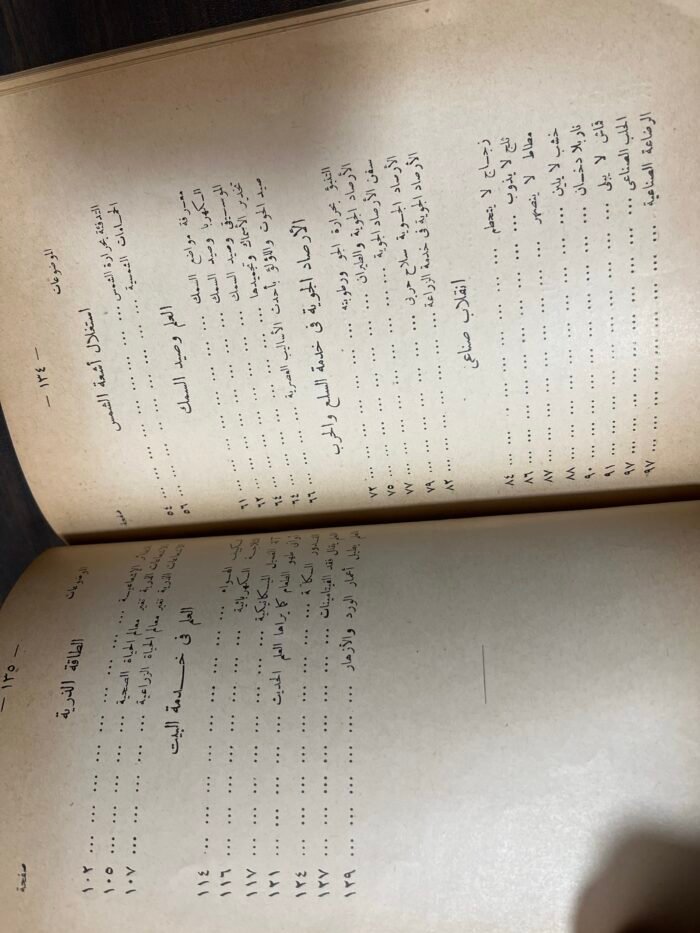 — ١٣٤ —
الموضوعات
صفحة
استغلال أشعة الشمس
التدفئة بحرارة الشمس ... ... ... ... ... ... ٥٤
الحمامات الشمسية ... ... ... ... ... ... ٥٦
العلم وصيد السمك
معرفة مواقع السمك ... ... ... ... ... ... ٦١
الكهربا وصيد السمك ... ... ... ... ... ... ٦٢
الموسيقى وصيد السمك ... ... ... ... ... ... ٦٤
تخدير الأسماك وتجميدها ... ... ... ... ... ... ٦٤
صيد الحوت واللؤلؤ بأحدث الأساليب العصرية ... ... ... ٦٦
الأرصاد الجوية فى خدمة السلم والحرب
التنبؤ بحرارة الجو ورطوبته ... ... ... ... ... ٧٢
الأرصاد الجوية والطيران ... ... ... ... ... ٧٥
سفن الأرصاد الجوية ... ... ... ... ... ... ٧٧
الأرصاد الجوية سلاح حربى ... ... ... ... ... ٧٩
الأرصاد الجوية فى خدمة الزراعة ... ... ... ... ٨٢
انقلاب صناعى
زجاج لا يتحطم ... ... ... ... ... ... ٨٤
ثلج لا يذوب ... ... ... ... ... ... ٨٦
مطاط لا ينصهر ... ... ... ... ... ... ٨٧
خشب لا يلين ... ... ... ... ... ... ٨٨
نار بلا دخان ... ... ... ... ... ... ٩٠
قماش لا يبلى ... ... ... ... ... ... ٩١
الحلب الصناعى ... ... ... ... ... ... ٩٧
الرضاعة الصناعية ... ... ... ... ... ... ٩٧
— ١٣٥ —
الموضوعات
صفحة
الطاقة الذرية
الإشعاعية ... ... ... ... ... ... ١٠٢
الإشعاعات الذرية تغير معالم الحياة الصحية ... ... ... ١٠٥
الإشعاعات الذرية تغير معالم الحياة الزراعية ... ... ... ١٠٧
العلم فى خدمة البيت
تكييف الهواء ... ... ... ... ... ... ١١٤
الكهربائية ... ... ... ... ... ... ١١٦
آلة الغسيل الميكانيكية ... ... ... ... ... ... ١١٧
طهو الطعام كما يراها العلم الحديث ... ... ... ... ١٢١
... ... ... ... ... ... ١٢٤
فقد الفيتامينات ... ... ... ... ... ١٢٧
يطيل أعمار الورد والأزهار ... ... ... ... ... ١٢٩